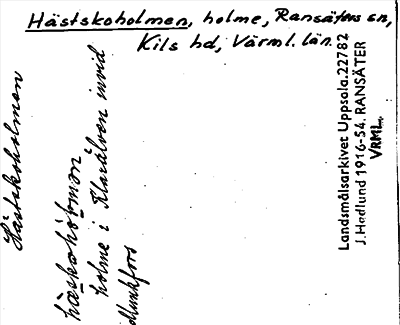 Hästskoholmen, holme, Ransäters sn,
Kils hd, Värml. län.
Hästskoholmen
holme i Klarälven invid
Landsmålsarkivet Uppsala.22782
J. Hedlund 1916-54. RANSÄTER
VRML.